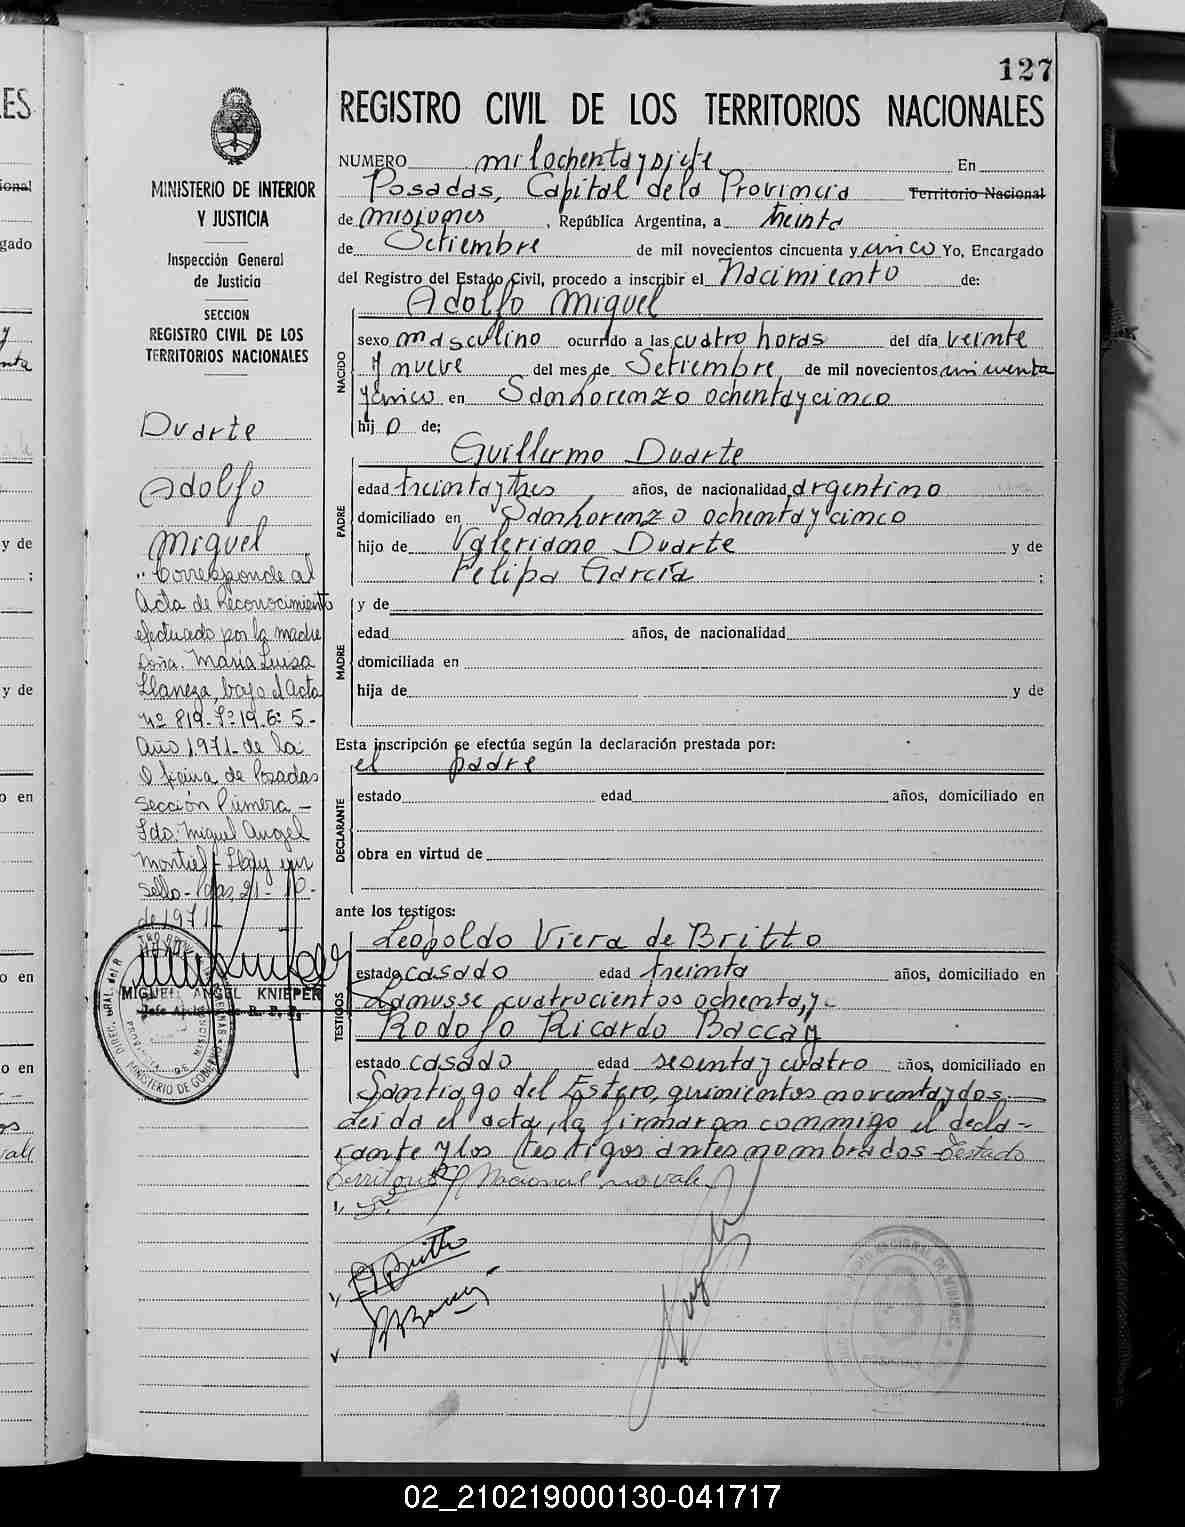 127
REGISTRO CIVIL DE LOS TERRITORIOS NACIONALES
MINISTERIO DE INTERIOR
Y JUSTICIA
Inspección General
de Justicia
SECCION
REGISTRO CIVIL DE LOS
TERRITORIOS NACIONALES
Duarte
Adolfo
Miguel
"Corresponde al
Acta de Reconocimiento
efectuado por la madre
Doña. María Luisa
Llaneza, bajo el Acta
Nº 819- Fº 19. 6: 5-
Año 1971- de la
Oficina de Posadas
Sección Primera -
Fdo. Miguel Angel
Montiel- Hay un
sello- 21- 10-
de 1971-
MIGUEL ANGEL KNIEPER
MINISTERIO DE GOBIERNO
NUMERO mil ochenta y siete En
Posadas, Capital de la Provincia Territorio Nacional
de misiones, República Argentina, a treinta
de Setiembre de mil novecientos cincuenta y cinco Yo, Encargado
del Registro del Estado Civil, procedo a inscribir el Nacimiento de:
Adolfo Miguel
NACIDO
sexo masculino ocurrido a las cuatro horas del día veinte
y nueve del mes de Setiembre de mil novecientos cincuenta
y cinco en San Lorenzo ochenta y cinco
hij o de;
Guillermo Duarte
PADRE
edad treinta y tres años, de nacionalidad argentino
domiciliado en San Lorenzo ochenta y cinco
hijo de Valeriano Duarte y de
Felipa García ;
MADRE
y de
edad años, de nacionalidad
domiciliada en
hija de y de
Esta inscripción se efectúa según la declaración prestada por:
el padre
DECLARANTE
estado edad años, domiciliado en
obra en virtud de
ante los testigos:
TESTIGOS
Leopoldo Viera de Britto
estado casado edad treinta años, domiciliado en
Lanusse cuatrocientos ochenta y
Rodolfo Ricardo Baccay
estado casado edad sesenta y cuatro años, domiciliado en
Santiago del Estero, quinientos noventa y dos.
Leida el acta, la firmaron conmigo el decla-
rante y los testigos antes nombrados- Testado
Territorio Nacional no vale.
02_210219000130-041717